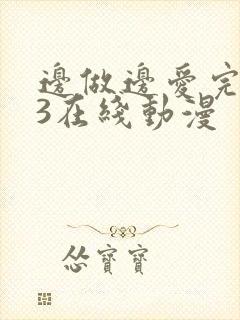 邊做邊愛完
3在綫動漫
怂寶寶